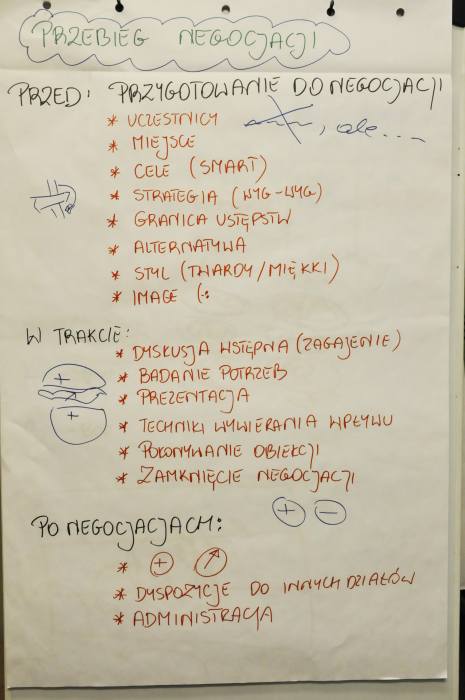 PRZEBIEG NEGOCJACJI
PRZED: PRZYGOTOWANIE DO NEGOCJACJI
* UCZESTNICY
, ale....
* MIEJSCE
* CELE (SMART)
* STRATEGIA (WYG-WYG)
* GRANICA USTĘPSTW
* ALTERNATYWA
* STYL (TWARDY/MIĘKKI)
* IMAGE (:
W TRAKCIE:
* DYSKUSJA WSTĘPNA (ZAGAJENIE)
* BADANIE POTRZEB
* PREZENTACJA
* TECHNIKI WYWIERANIA WPŁYWU
* POKONYWANIE OBIEKCJI
* ZAMKNIĘCIE NEGOCJACJI
+ -
PO NEGOCJACJACH:
* + ↗
* DYSPOZYCJE DO INNYCH DZIAŁÓW
* ADMINISTRACJA